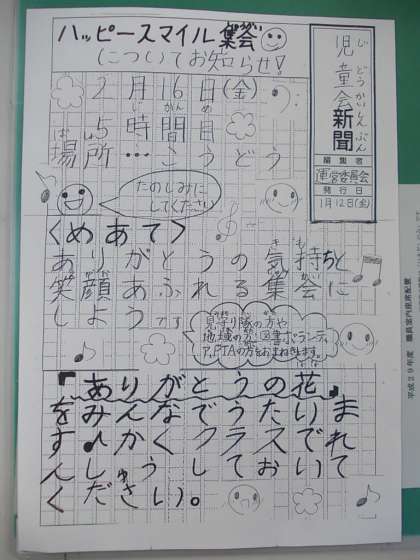 ハッピースマイル集会
についてお知らせ!
児童会新聞
じどうかいしんぶん
編集者
運営委員会
発行日
1月12日(金)
2月16日(金)
5時間目
場所…こうどう
たのしみに
してください
<めあて>
ありがとうの気持ちと
笑顔あふれる集会に
しようです
見守り隊の方や
地域の方、図書ボランティ
ア、PTAの方をおまねきします。
『ありがとうの花』
をみんなでうたいま
す♪かくクラスでれ
んしゅうしておいて
ください。
平成29年度 職員室内座席配置